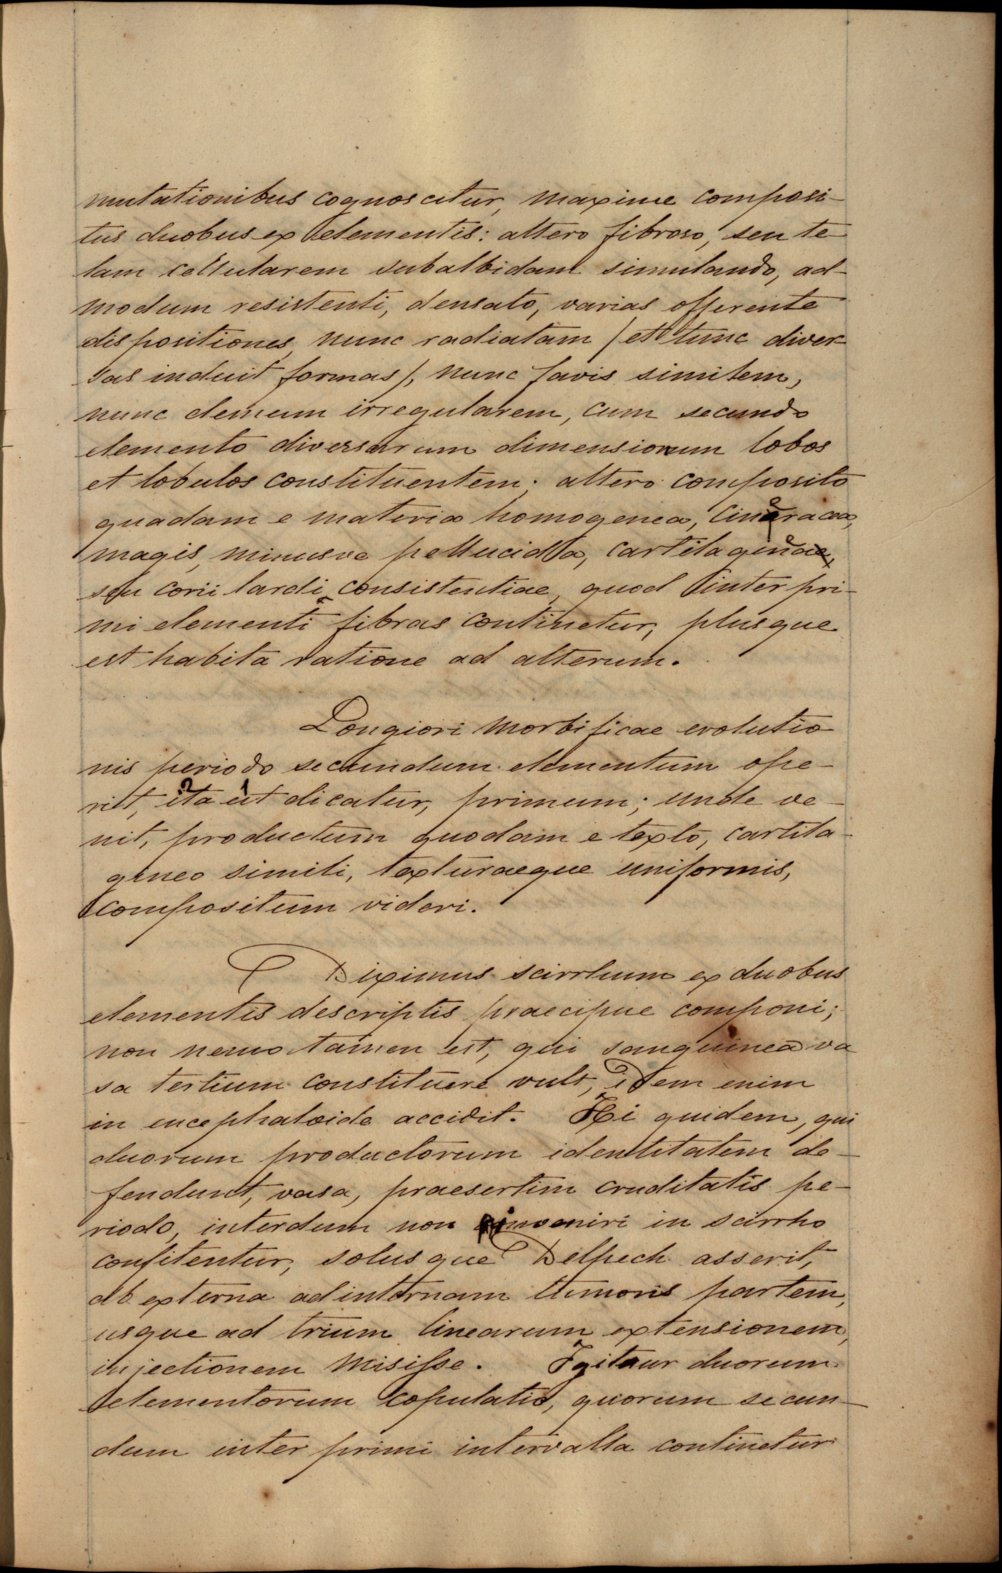 mutationibus cognoscitur, maxime composi-
tus duobus ex elementis: altero fibroso, seu te-
lam cellularem subalbidam simulando, ad-
modum resistenti, densato, varias offerente
dispositiones, nunc radiatam (et tunc diver-
sas induit formas), nunc favis similem,
nunc demum irregularem, cum secundo
elemento diversarum dimensionum lobos
et lobulos constituentem; altero composito
quadam e materia homogenea, cineracea,
magis, minusve pellucida, cartilagineae,
seu corii lardi consistentiae, quod inter pri-
mi elementi fibras continetur, plusque
est habita ratione ad alterum.
Longiori morbificae evolutio
nis periodo secundum elementum ope-
rit, ita ut dicatur, primum; unde ve-
nit, productum quodam e texto, cartila-
gineo simili, texturaeque uniformis,
compositum videri.
Diximus scirrhum ex duobus
elementis descriptis praecipue componi;
non nemo tamen est, qui sanguinea va
sa tertium constituere vult, idem enim
in encephaloide accidit. Hi quidem, qui
duorum productorum identitatem de-
fendunt, vasa, praesertim cruditatis pe-
riodo, interdum non inveniri in scirrho
confitentur, solusque Delpech asserit,
ab externa ad internam tumoris partem,
usque ad trium linearum extensionem,
injectionem misisse. Igitur duorum
elementorum copulatio, quorum secun-
dum inter primi intervalla continetur